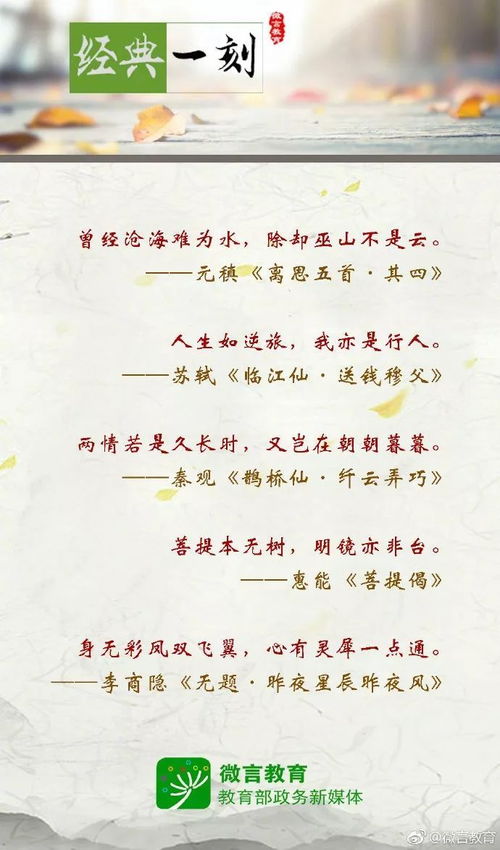 经典一刻
微言教育
曾经沧海难为水，除却巫山不是云。
——元稹《离思五首·其四》
人生如逆旅，我亦是行人。
——苏轼《临江仙·送钱穆父》
两情若是久长时，又岂在朝朝暮暮。
——秦观《鹊桥仙·纤云弄巧》
菩提本无树，明镜亦非台。
——惠能《菩提偈》
身无彩凤双飞翼，心有灵犀一点通。
——李商隐《无题·昨夜星辰昨夜风》
微言教育
教育部政务新媒体
@微言教育